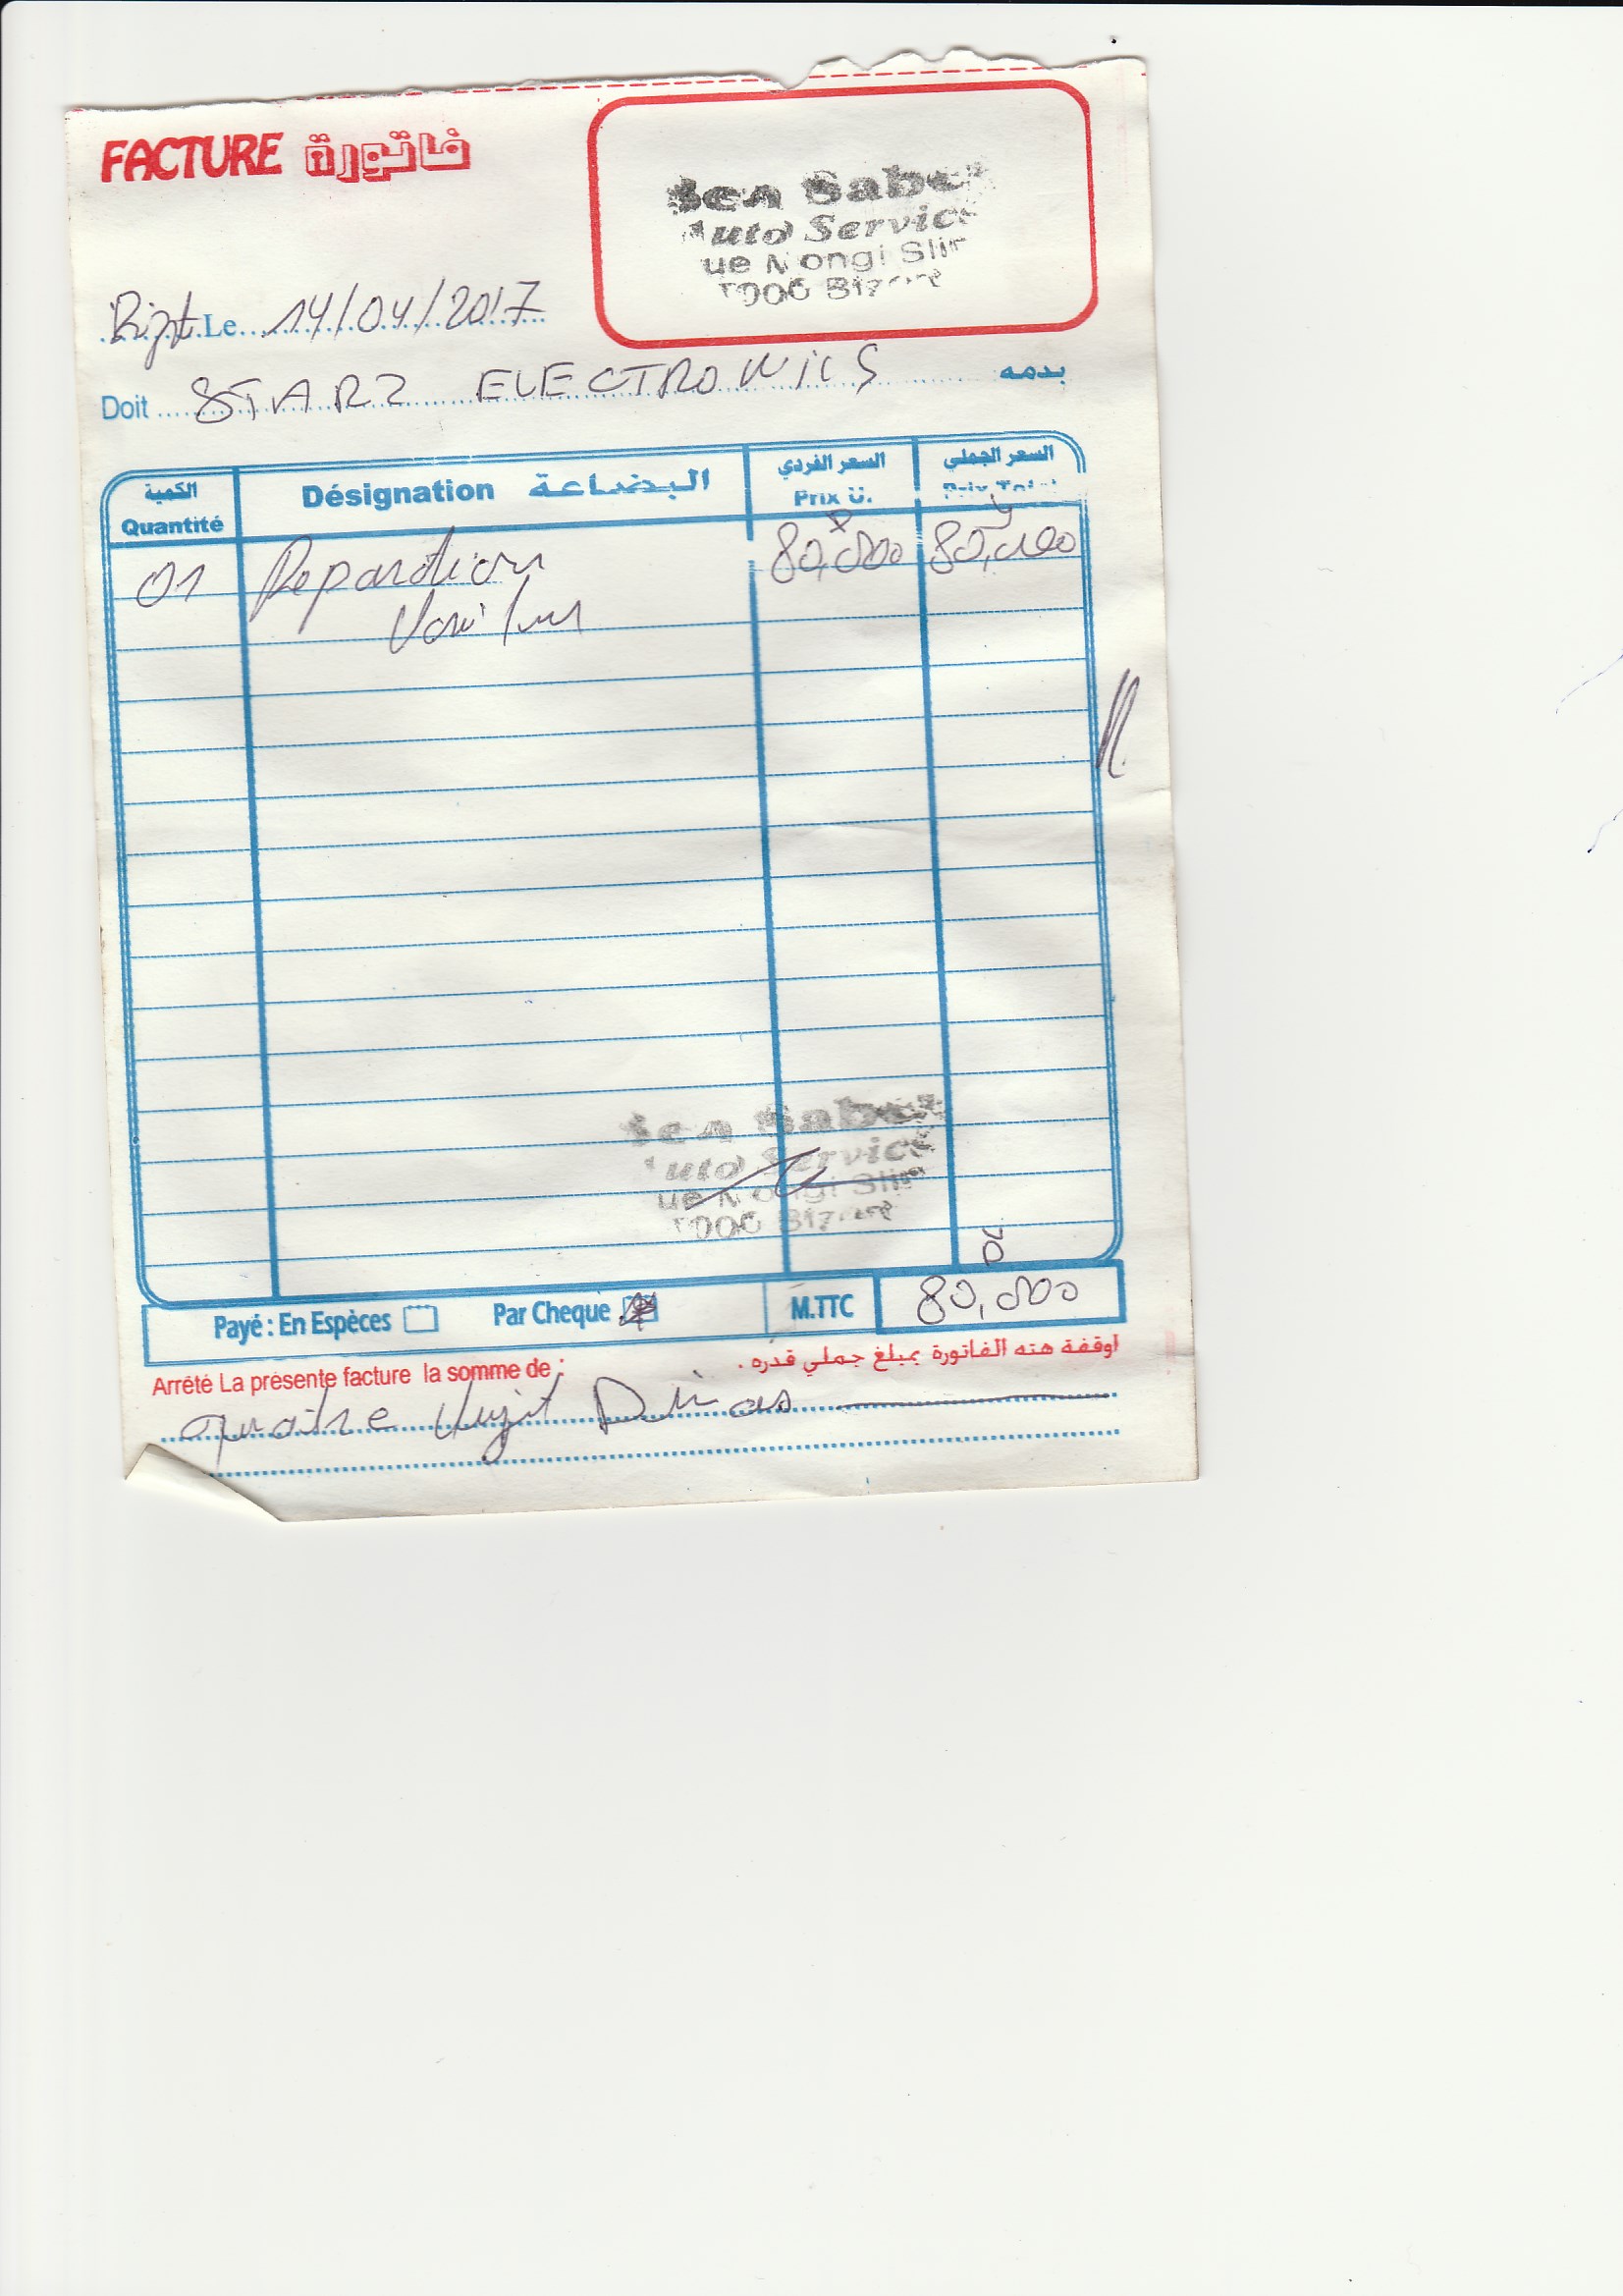 FACTURE فاتورة
Ben Sabe
Auto Service
ue Mongi Slim
7000 Bizerte
Bizt Le 14/04/2017
Doit STARZ ELECTRONICS بدمه
الكمية البضاعة السعر الفردي السعر الجملي
Quantité Désignation Prix U. Prix Total
01 Reparation 80,000 80,000
Ben Sabe
Auto Service
ue Mongi Slim
7000 Bizerte
Payé : En Espèces Par Cheque M.TTC 80,000
Arrété La présente facture la somme de : اوقفة هته الفاتورة بمبلغ جملي قدره .
quatre vingt Dinars